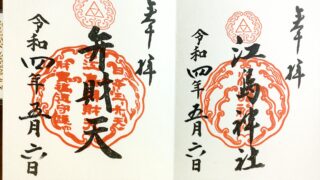 奉拝
弁財天
令和四年五月六日
奉拝
江島神社
令和四年五月六日